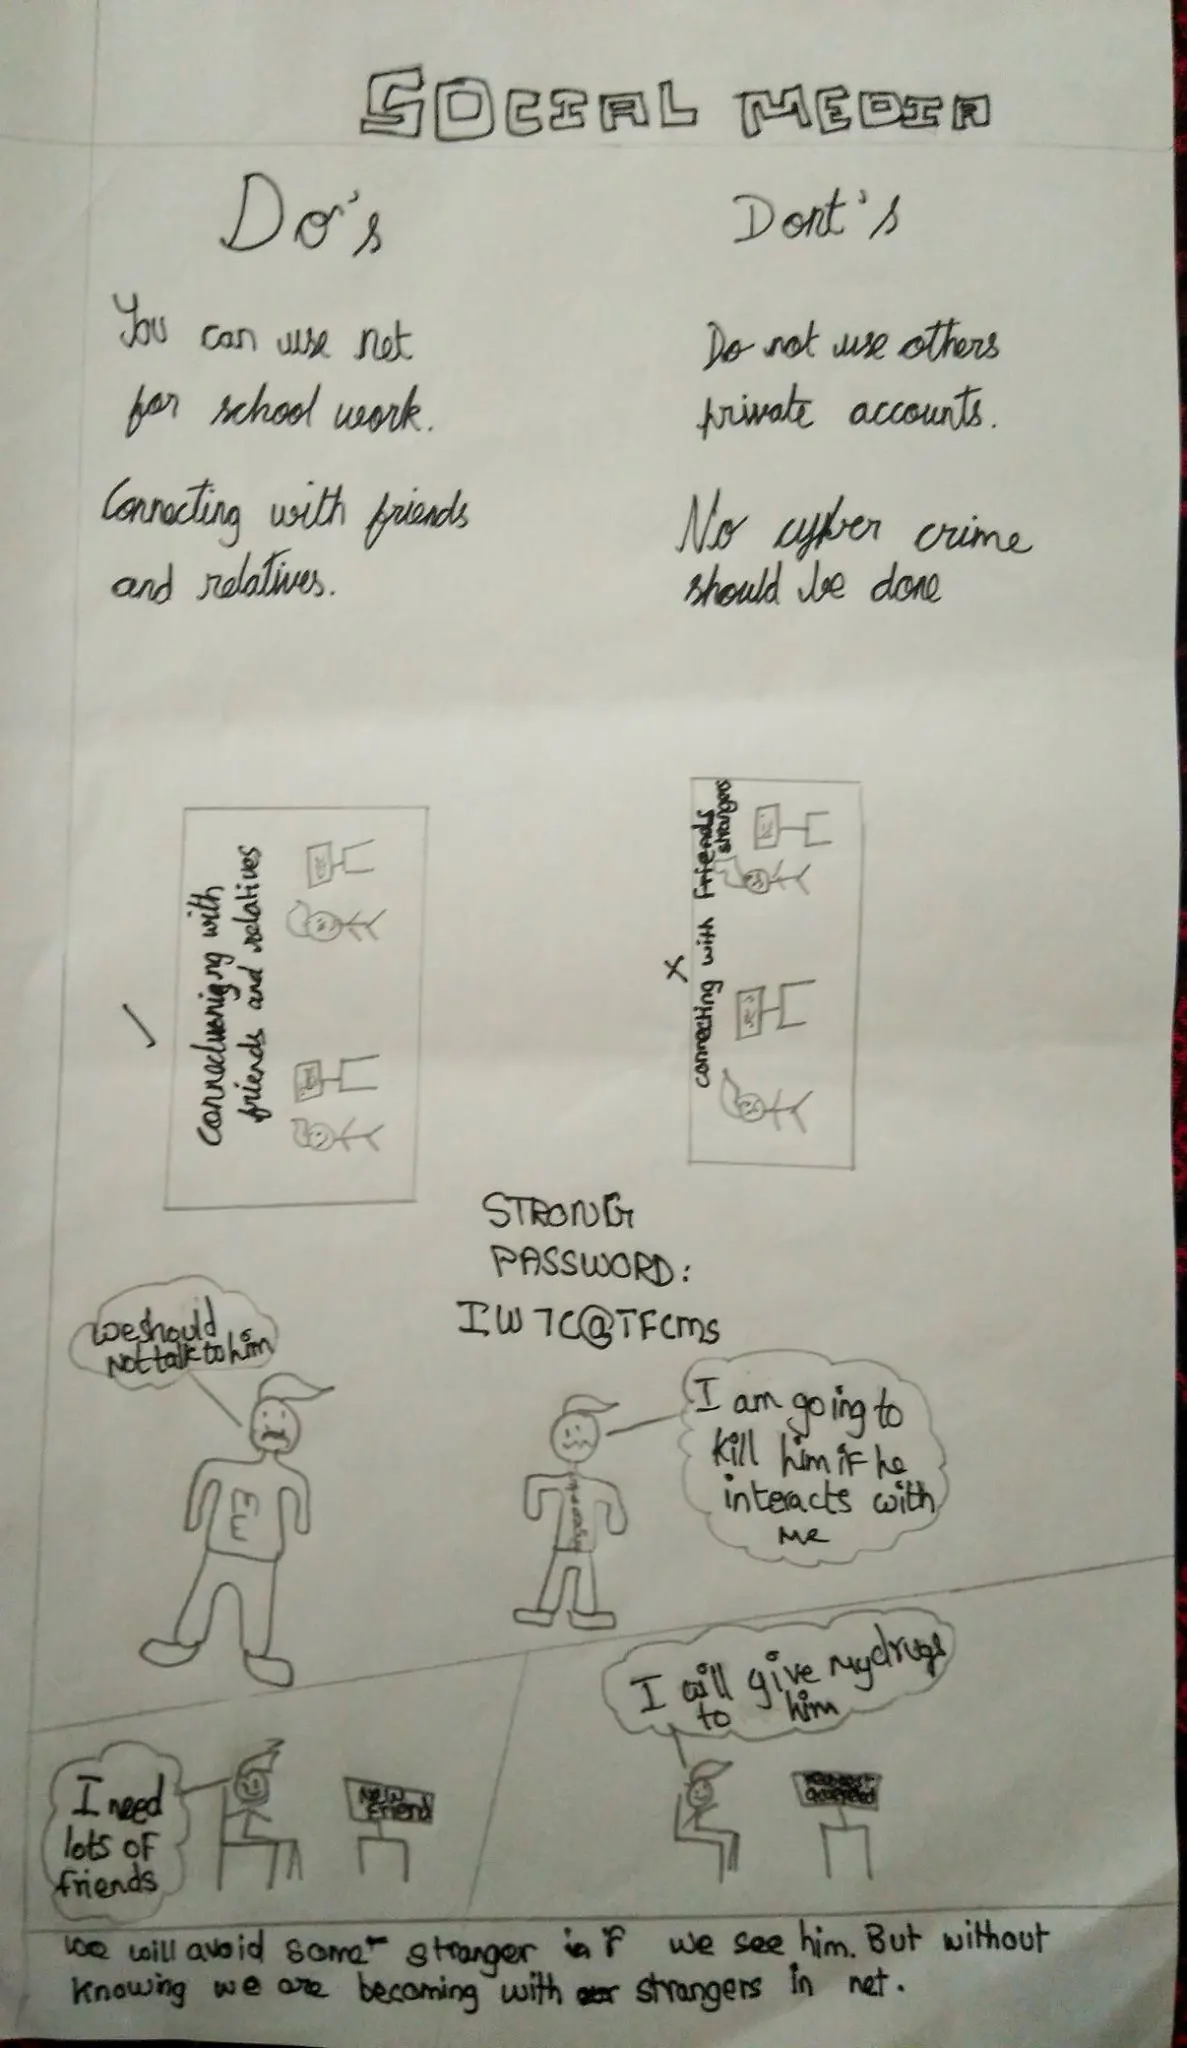 SOCIAL MEDIA
Do's
You can use net
for school work.
Connecting with friends
and relatives.
Dont's
Do not use others
private accounts.
No cyber crime
should be done
friends and relatives
connecting with Friends
strangers
STRONG
PASSWORD:
IW7C@TFCms
We should
Not talk to him
I am going to
kill him if he
interacts with
me
I need
lots of
friends
New
Friend
I will give my drugs
to him
Request
accepted
we will avoid some stranger if we see him. But without
knowing we are becoming with strangers in net.